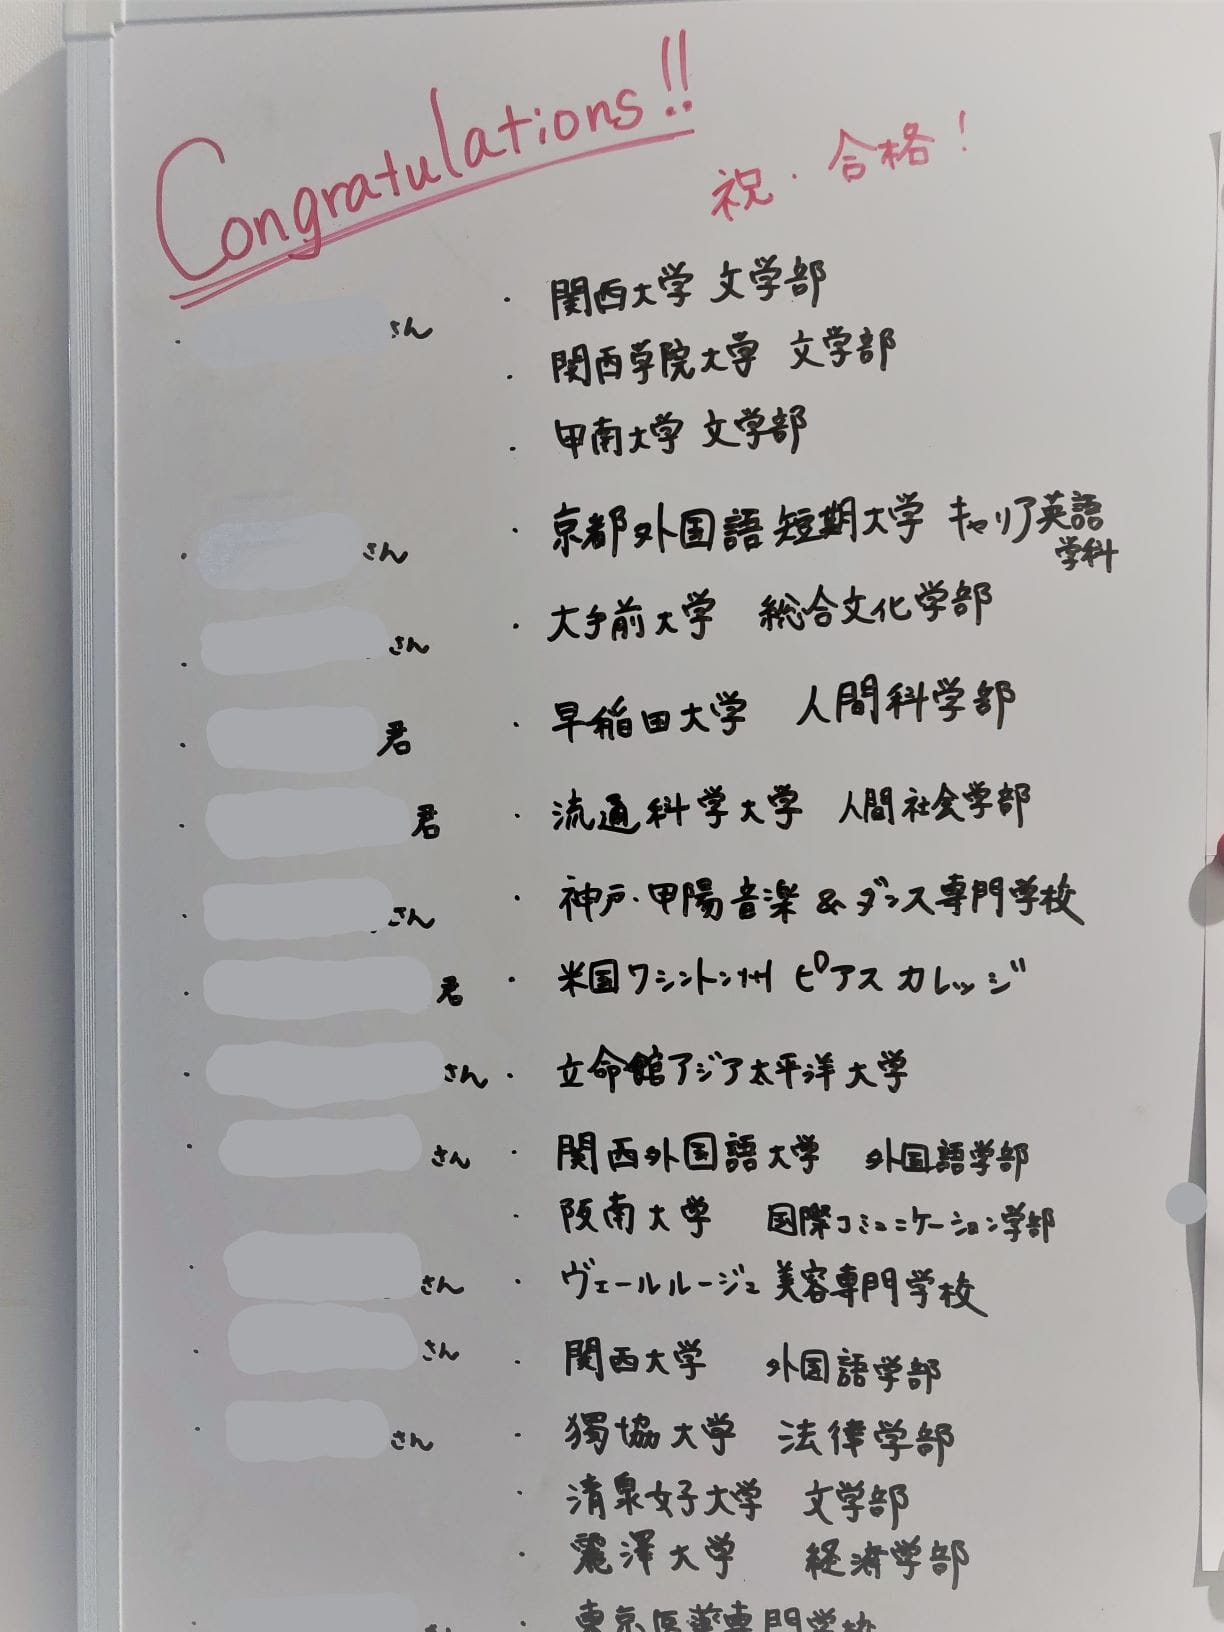 Congratulations!!
祝・合格!
・ さん ・関西大学 文学部
・関西学院大学 文学部
・甲南大学 文学部
・ さん ・京都外国語短期大学 キャリア英語
学科
・ さん ・大手前大学 総合文化学部
・ 君 ・早稲田大学 人間科学部
・ 君 ・流通科学大学 人間社会学部
・ さん ・神戸・甲陽音楽&ダンス専門学校
・ 君 ・米国ワシントン州 ピアスカレッジ
・ さん ・立命館アジア太平洋大学
・ さん ・関西外国語大学 外国語学部
・阪南大学 国際コミュニケーション学部
・ さん ・ヴェールルージュ美容専門学校
・ さん ・関西大学 外国語学部
・ さん ・獨協大学 法律学部
・清泉女子大学 文学部
・麗澤大学 経済学部
・東京医薬専門学校